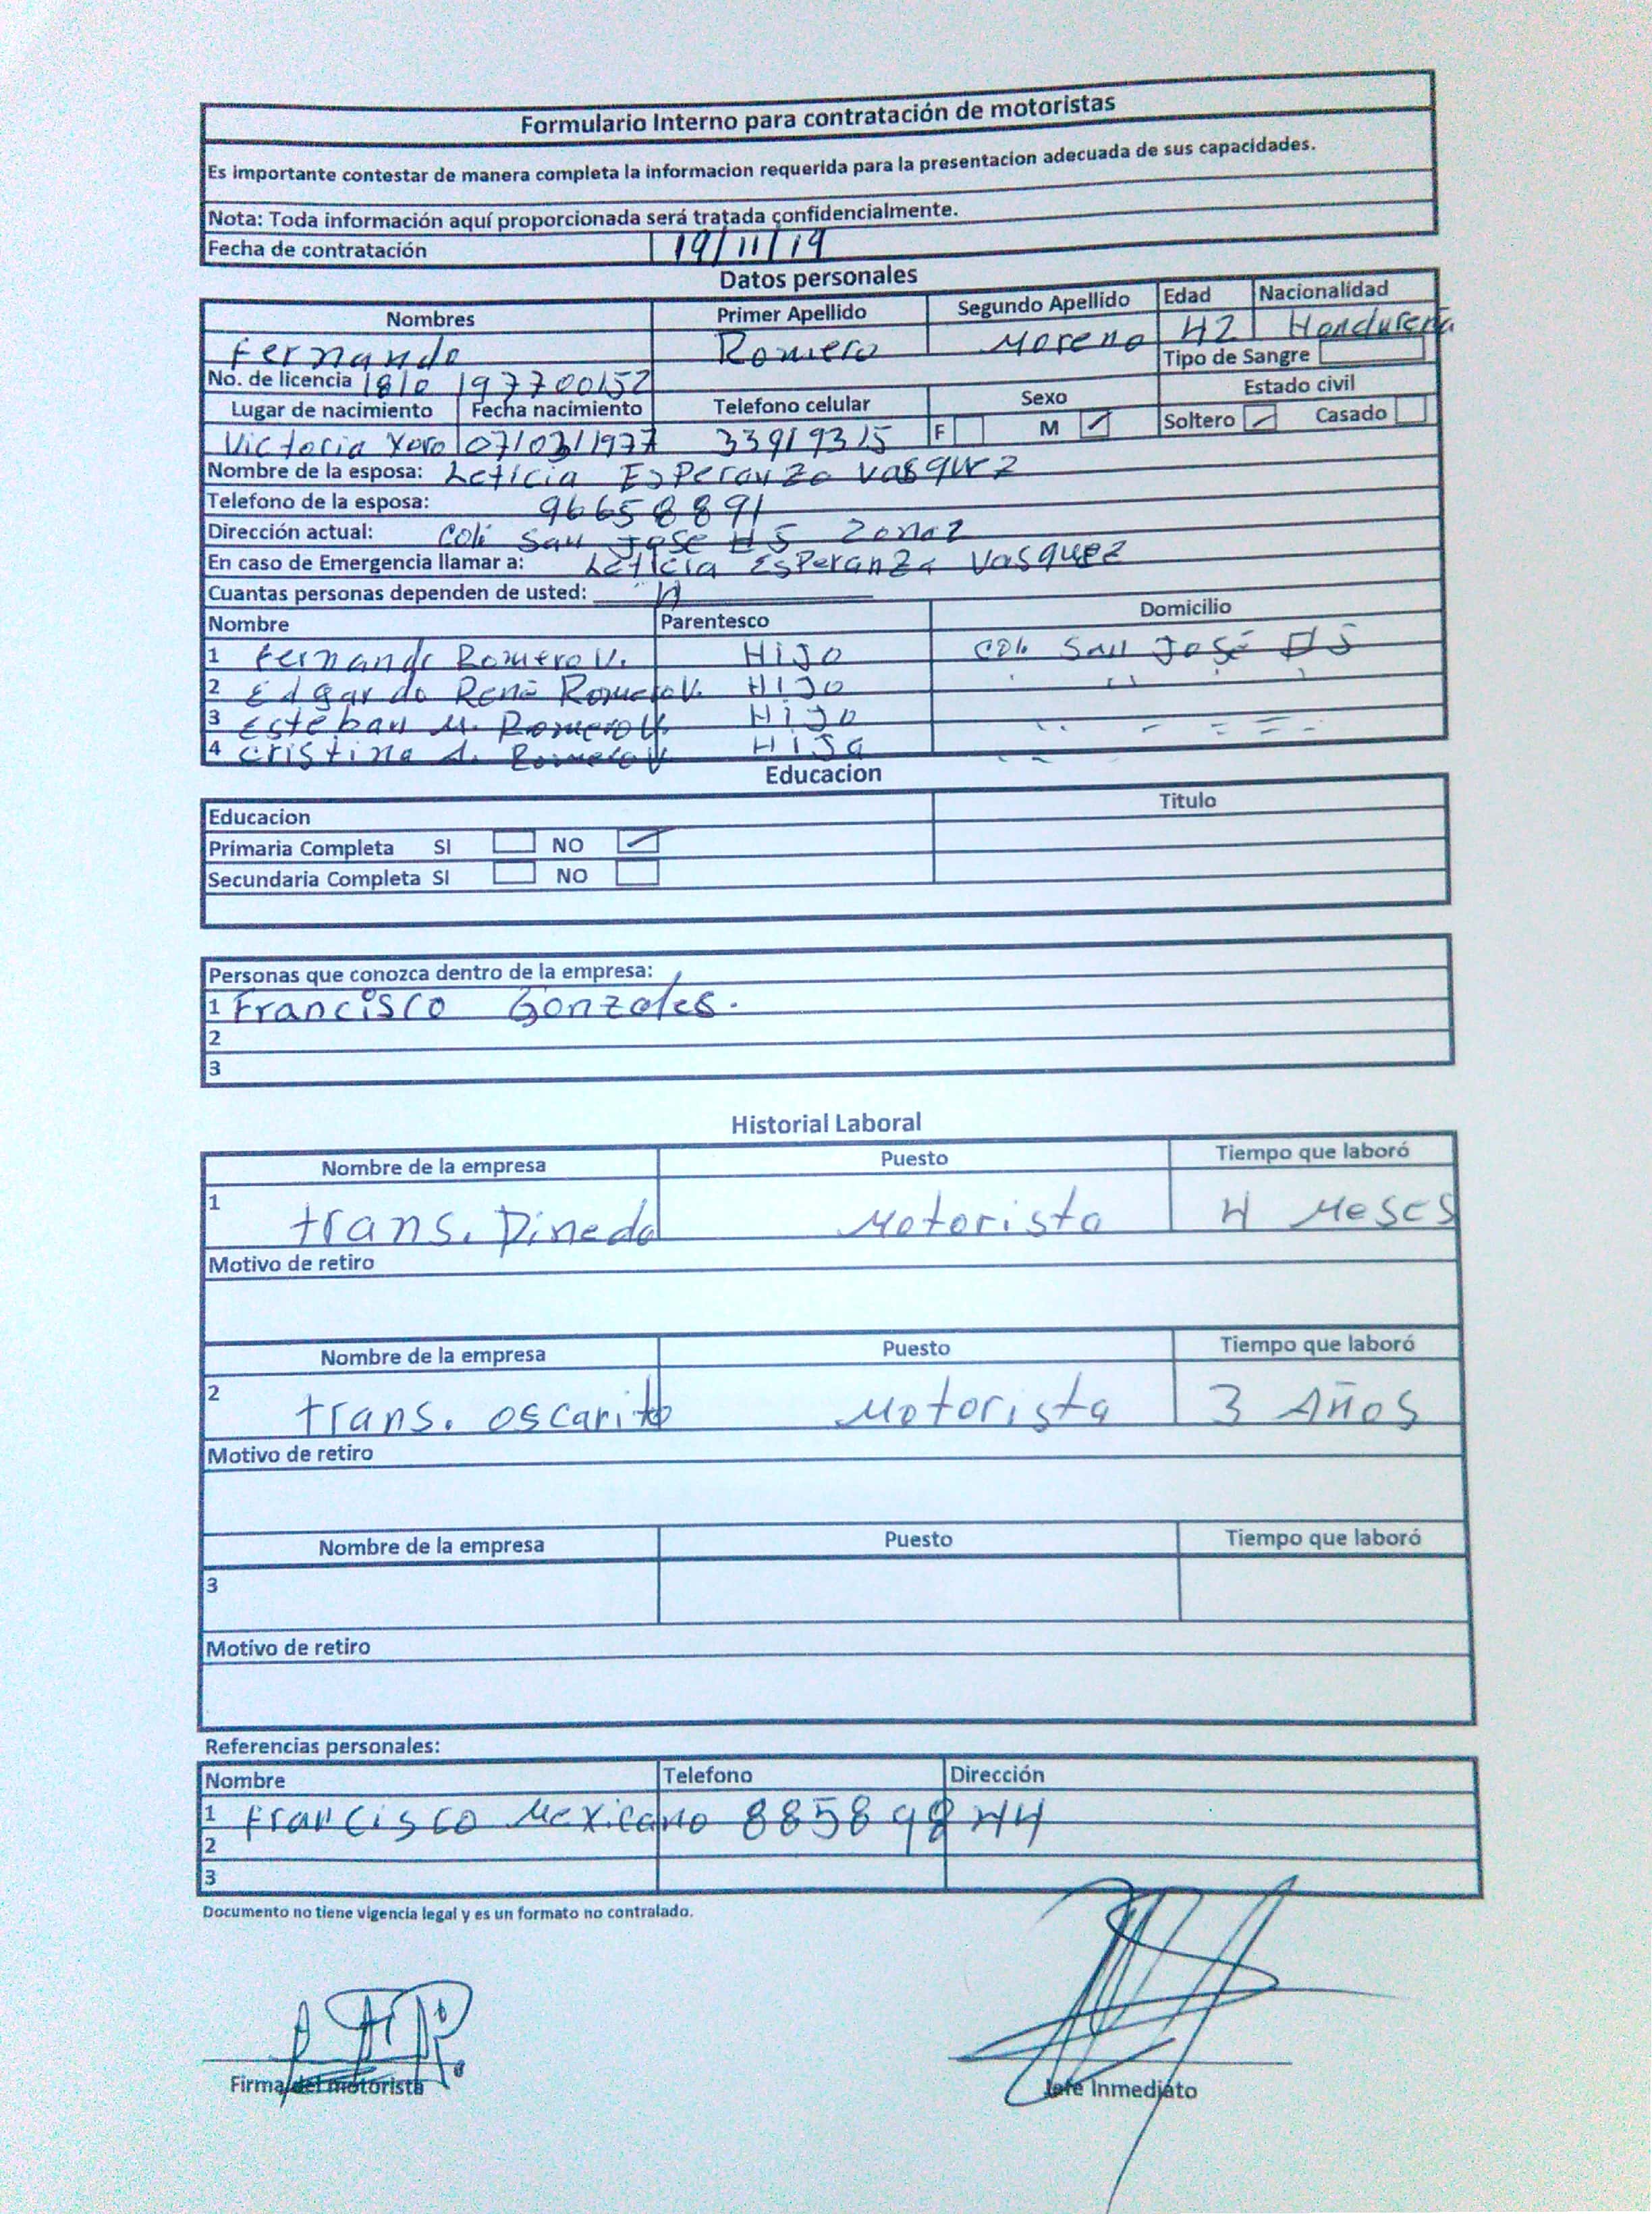 Formulario Interno para contratación de motoristas
Es importante contestar de manera completa la informacion requerida para la presentacion adecuada de sus capacidades.
Nota: Toda información aquí proporcionada será tratada confidencialmente.
Fecha de contratación 19/11/19
Datos personales
Nombres Primer Apellido Segundo Apellido Edad Nacionalidad
Fernando Romero Moreno 42 Hondureña
Tipo de Sangre
No. de licencia 1810 197700152
Lugar de nacimiento Fecha nacimiento Telefono celular Sexo Estado civil
Victoria Yoro 07/03/1977 33919315 F M Soltero Casado
Nombre de la esposa: Leticia Esperanza Vasquez
Telefono de la esposa: 96658891
Dirección actual: Col. San Jose #5 Zona 2
En caso de Emergencia llamar a: Leticia Esperanza Vasquez
Cuantas personas dependen de usted: 4
Nombre Parentesco Domicilio
1 Fernando Romero V. Hijo Col. San José #5
2 Edgardo René Romero V. Hijo
3 Esteban M. Romero V. Hijo
4 Cristina A. Romero V Hija
Educacion
Educacion Titulo
Primaria Completa SI NO
Secundaria Completa SI NO
Personas que conozca dentro de la empresa:
1 Francisco Gonzales.
2
3
Historial Laboral
Nombre de la empresa Puesto Tiempo que laboró
1 trans. Pineda Motorista 4 Meses
Motivo de retiro
Nombre de la empresa Puesto Tiempo que laboró
2 trans. oscarito Motorista 3 Años
Motivo de retiro
Nombre de la empresa Puesto Tiempo que laboró
3
Motivo de retiro
Referencias personales:
Nombre Telefono Dirección
1 Francisco Mexicano 88589844
2
3
Documento no tiene vigencia legal y es un formato no contralado.
Firma del motorista Jefe Inmediato